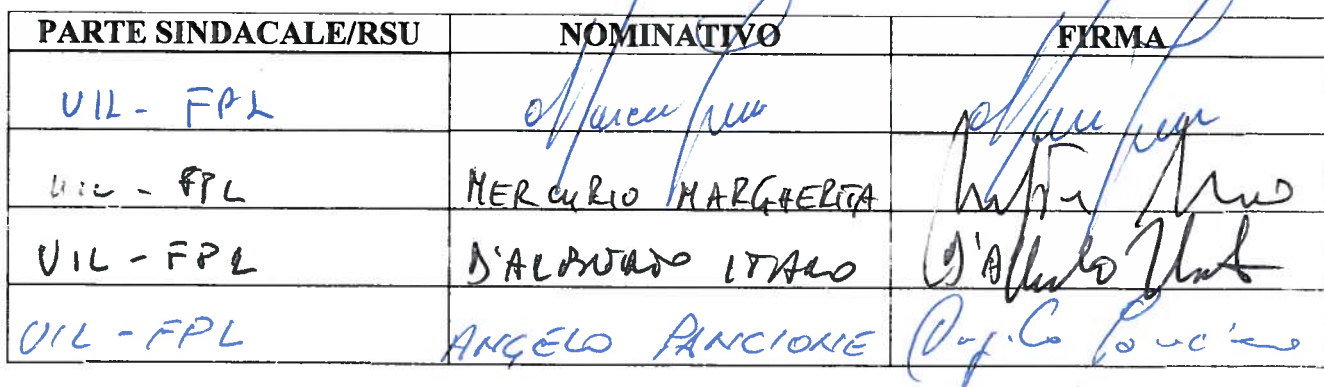 PARTE SINDACALE/RSU NOMINATIVO FIRMA
UIL - FPL
UIL - FPL MERCURIO MARGHERITA
UIL - FPL D'ALBERTO ITALO
UIL - FPL ANGELO PANCIONE Angelo Pancione